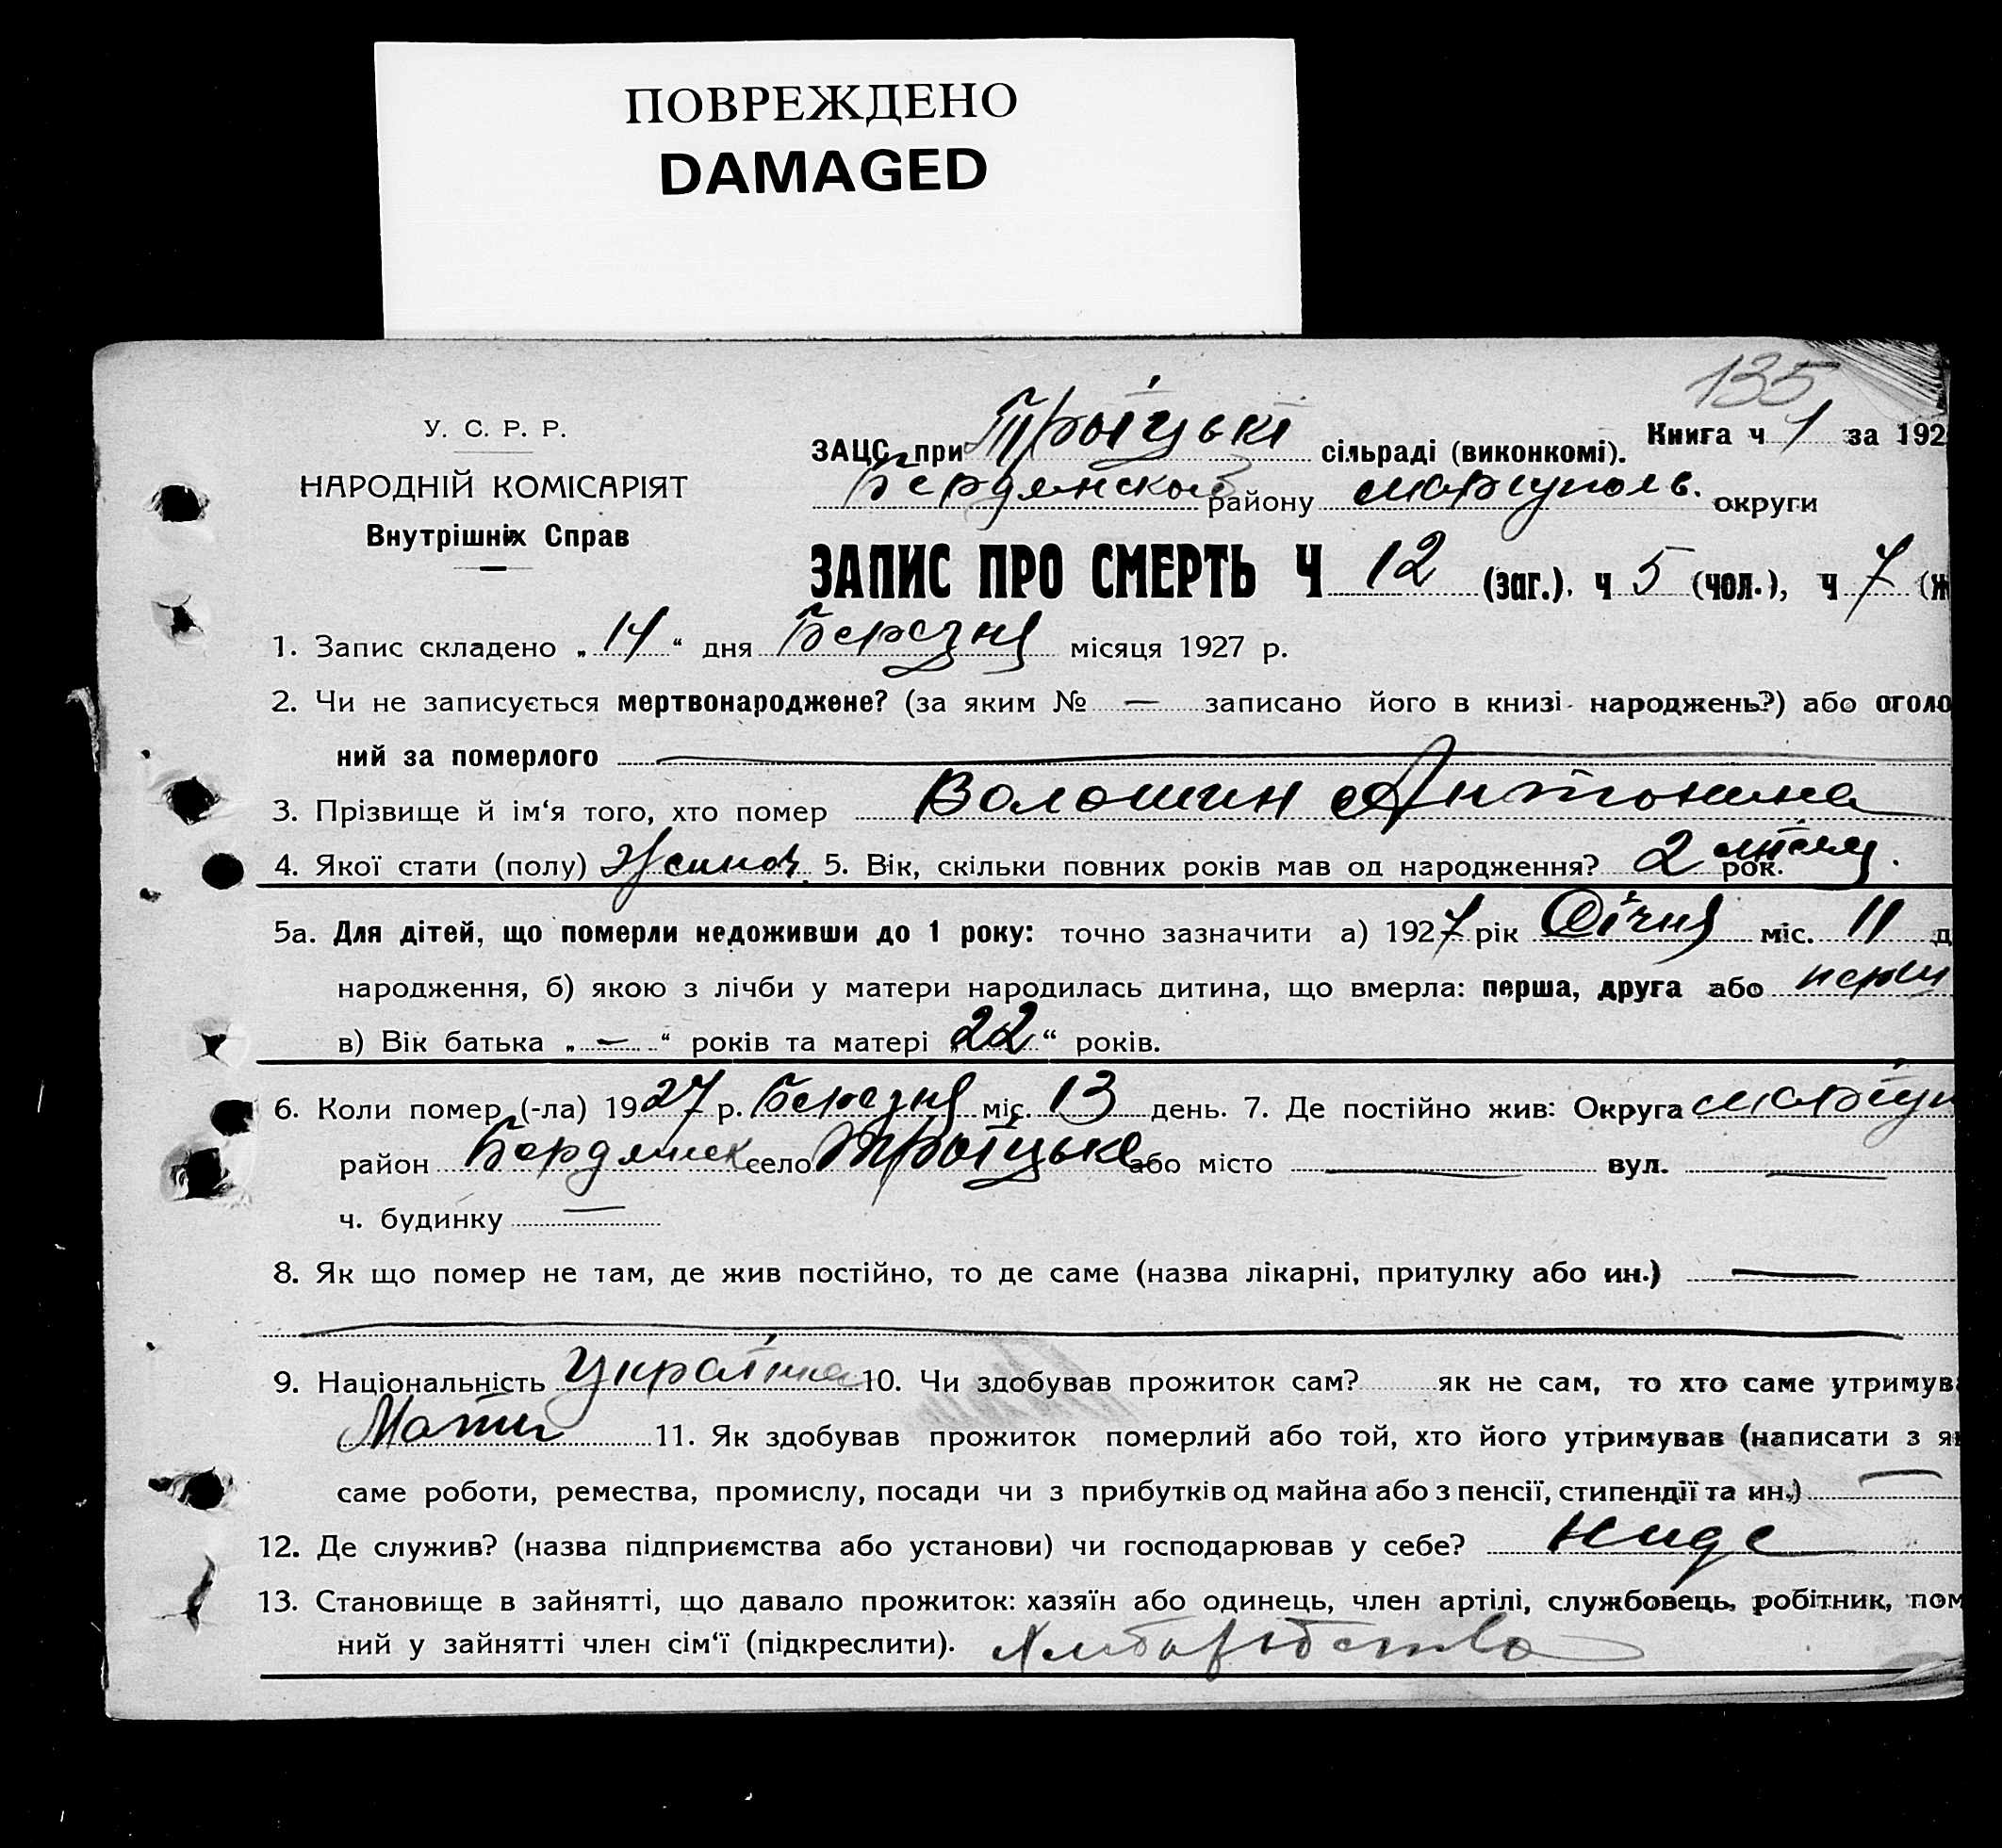 ПОВРЕЖДЕНО
DAMAGED
135
У. С. Р. Р.
НАРОДНІЙ КОМІСАРІЯТ
Внутрішніх Справ
ЗАЦС при Троїцькі сільраді (виконкомі). Книга ч 1 за 192
Бердянськоі району Маріуполь. округи
ЗАПИС ПРО СМЕРТЬ Ч 12 (заг.). ч 5 (чол.), ч 7 (ж
1. Запис складено „14“ дня Березня місяця 1927 р.
2. Чи не записується мертвонароджене? (за яким № — записано його в книзі народжень?) або оголо
ний за померлого —
3. Прізвище й ім‘я того, хто помер Волошин Антонина
4. Якої стати (полу) Жиноч. 5. Вік, скільки повних років мав од народження? 2 рок.
5а. Для дітей, що померли недоживши до 1 року: точно зазначити а) 1927 рік Січня міс. 11 д
народження, б) якою з лічби у матери народилась дитина, що вмерла: перша, друга або перш
в) Вік батька „—“ років та матері „22“ років.
6. Коли помер (-ла) 1927 р. Березня міс. 13 день. 7. Де постійно жив: Округа Маріуп
район Бердянск село Троїцьке або місто — вул. —
ч. будинку —
8. Як що помер не там, де жив постійно, то де саме (назва лікарні, притулку або ин.) —
9. Національність Україна 10. Чи здобував прожиток сам? як не сам, то хто саме утримув
Мати 11. Як здобував прожиток померлий або той, хто його утримував (написати з як
саме роботи, ремества, промислу, посади чи з прибутків од майна або з пенсії, стипендії та ин.) —
12. Де служив? (назва підприємства або установи) чи господарював у себе? Ниде
13. Становище в зайнятті, що давало прожиток: хазяїн або одинець, член артілі, службовець, робітник, пом
ний у зайнятті член сім‘ї (підкреслити). Хлиборобство